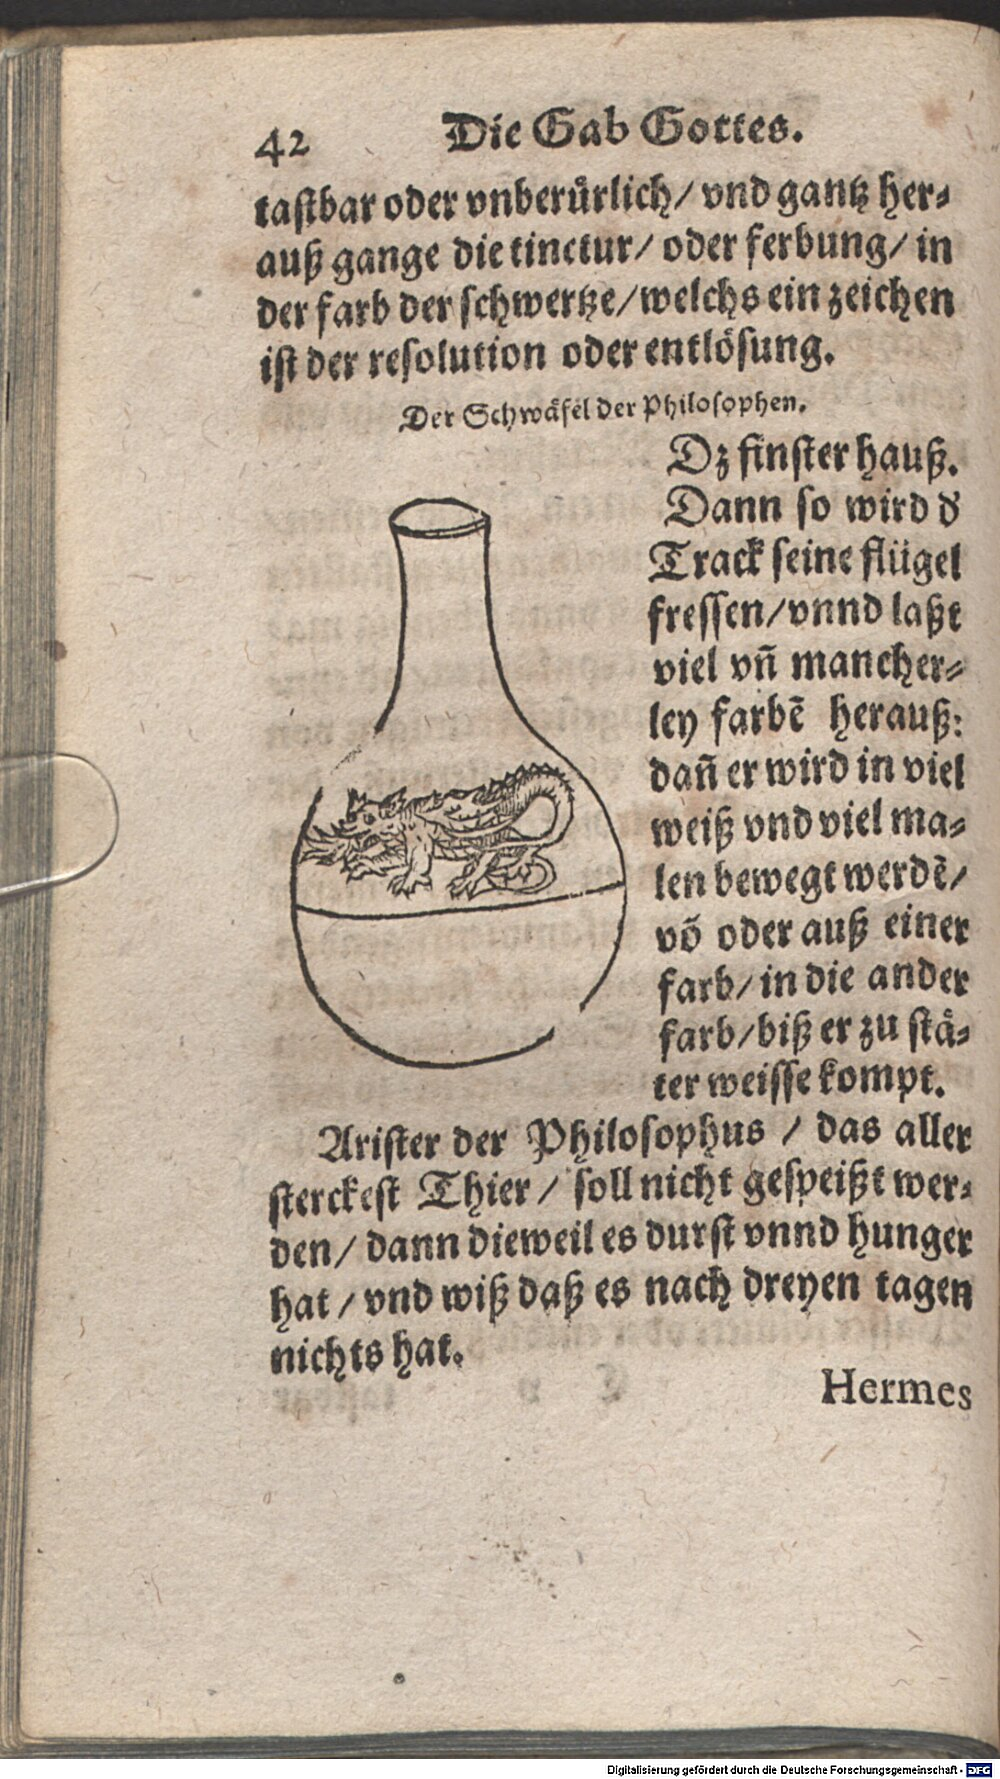 42 Die Gab Gottes.
tastbar oder vnberůrlich/ vnd gantz her⸗
auß gange die tinctur/ oder ferbung/ in
der farb der schwertze/welchs ein zeichen
ist der resolution oder entlösung.
Der Schwåfel der Philosophen.
Dz finster hauß.
Dann so wird d'
Track seine flügel
fressen/vnnd laßt
viel vñ mancher⸗
ley farbẽ herauß:
dañ er wird in viel
weiß vnd viel ma⸗
len bewegt werdẽ/
võ oder auß einer
farb/in die ander
farb/biß er zu stå⸗
ter weisse kompt.
Arister der Philosophus / das aller
sterckest Thier/ soll nicht gespeißt wer⸗
den/ dann dieweil es durst vnnd hunger
hat/ vnd wiß daß es nach dreyen tagen
nichts hat.
Hermes
Digitalisierung gefördert durch die Deutsche Forschungsgemeinschaft - DFG